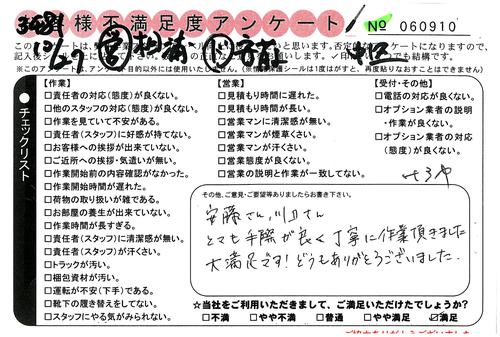 様不満足度アンケート
No 060910
12/27
【作業】
□責任者の対応(態度)が良くない。
□他のスタッフの対応(態度)が良くない。
□作業を見ていて不安がある。
□責任者(スタッフ)に好感が持てない。
□お客様への挨拶が出来ていない。
□ご近所への挨拶・気遣いが無い。
□作業開始前の内容確認がなかった。
□作業開始時間が遅れた。
□荷物の取り扱いが雑である。
□お部屋の養生が出来ていない。
□作業時間が長すぎる。
□責任者(スタッフ)に清潔感が無い。
□責任者(スタッフ)が汗くさい。
□トラックが汚い。
□梱包資材が汚い。
□運転が不安(下手)である。
□靴下の履き替えをしてない。
□スタッフにやる気がみられない。
【営業】
□見積もり時間に遅れた。
□見積もり時間が長い。
□営業マンに清潔感が無い。
□営業マンが煙草くさい。
□営業マンが汗くさい。
□営業態度が良くない。
□営業の説明と作業が一致してない。
【受付・その他】
□電話の対応が良くない。
□オプション業者の説明
・作業が良くない。
□オプション業者の対応
(態度)が良くない。
●チェックリスト
その他、ご意見・ご要望等ありましたらお書き下さい。
安藤さん、川口さん
とても手際が良く丁寧に作業頂きました
大満足です!どうもありがとうございました。
☆当社をご利用いただきまして、ご満足いただけたでしょうか?
□不満 □やや不満 □普通 □やや満足 ☑満足